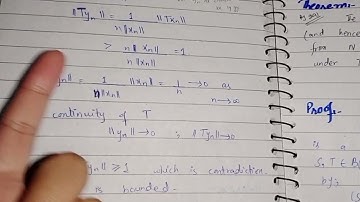 ‖Ty_n‖ = 1/(n‖x_n‖) ‖Tx_n‖
> n‖x_n‖/(n‖x_n‖) = 1
y_n‖ = 1/(n‖x_n‖) ‖x_n‖ = 1/n → 0 as
n→∞
continuity of T
‖y_n‖ → 0 ; ‖Ty_n‖ → 0
y_n‖ ≥ 1 which is contradiction.
is bounded.
Theorem:-
(and hence
from N
under T
Proof:-
is a
S, T ∈ B(
by: